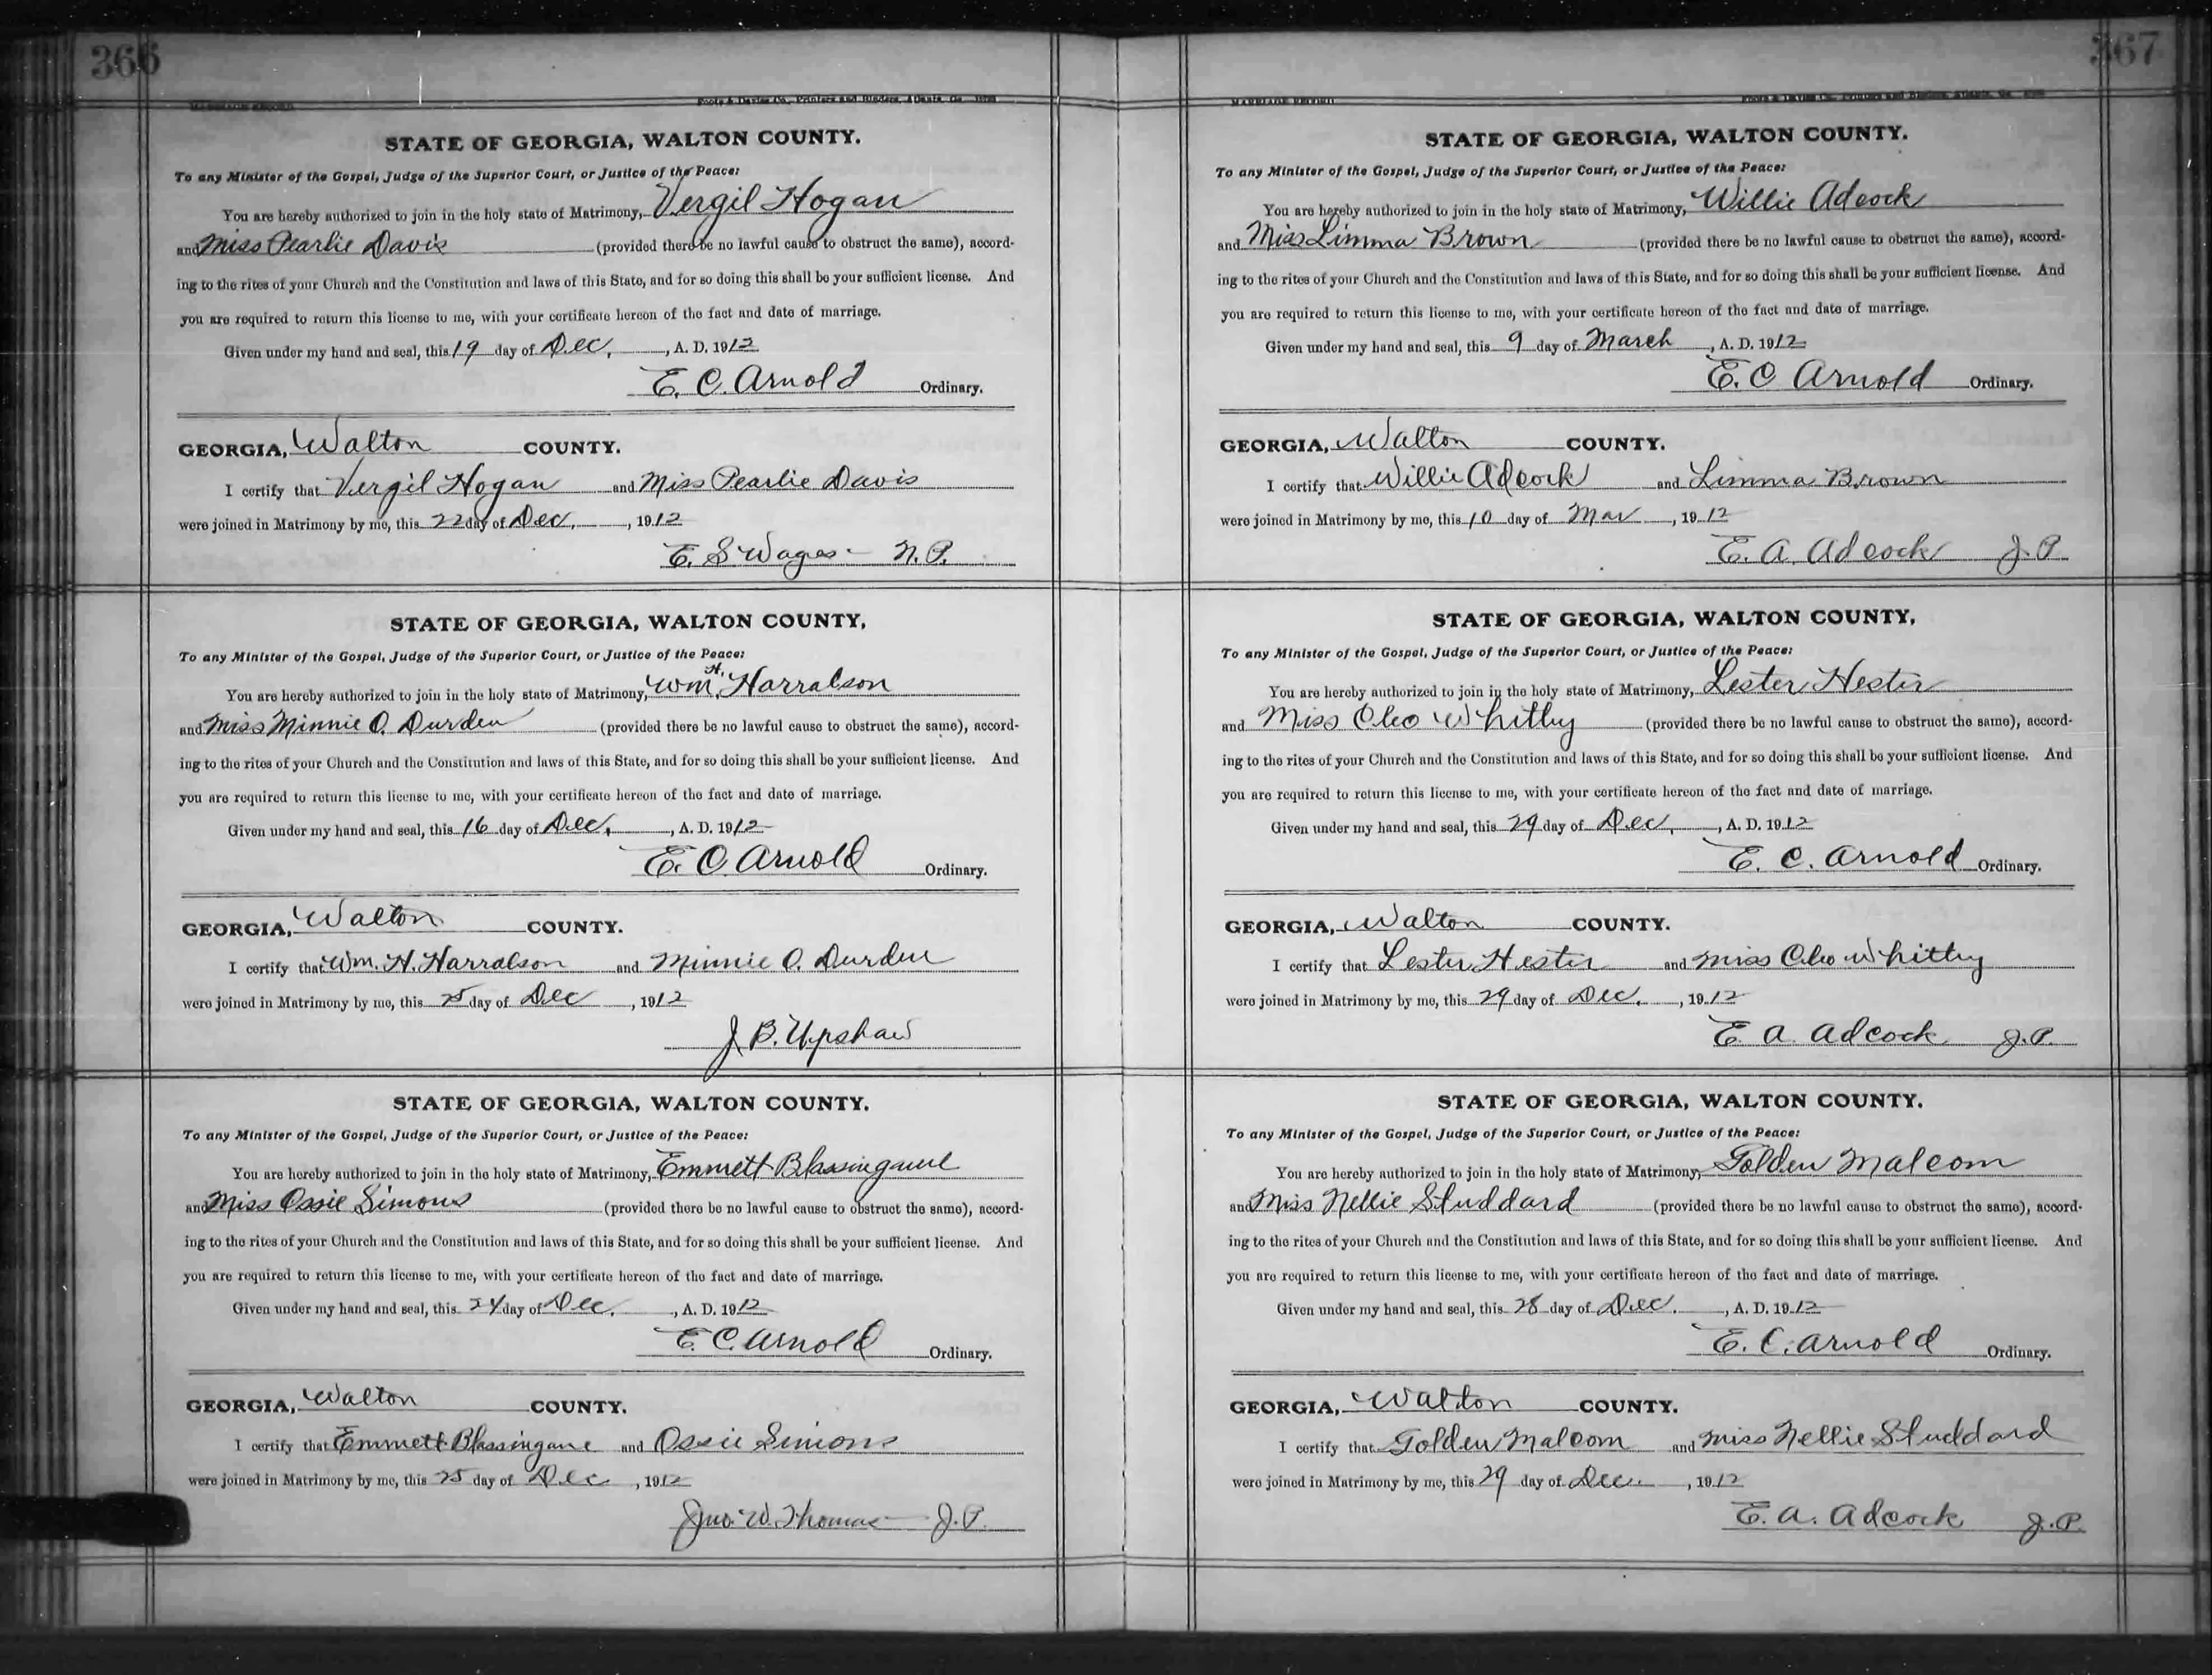 366
MARRIAGE RECORD
Foote & Davies Co., Printers and Binders, Atlanta, Ga.
STATE OF GEORGIA, WALTON COUNTY.
To any Minister of the Gospel, Judge of the Superior Court, or Justice of the Peace:
You are hereby authorized to join in the holy state of Matrimony, Vergil Hogan
and Miss Pearlie Davis (provided there be no lawful cause to obstruct the same), accord-
ing to the rites of your Church and the Constitution and laws of this State, and for so doing this shall be your sufficient license. And
you are required to return this license to me, with your certificate hereon of the fact and date of marriage.
Given under my hand and seal, this 19 day of Dec, , A. D. 1912
E. C. Arnold Ordinary.
GEORGIA, Walton COUNTY.
I certify that Vergil Hogan and Miss Pearlie Davis
were joined in Matrimony by me, this 22 day of Dec. , 1912
E. S Wages - N. P.
STATE OF GEORGIA, WALTON COUNTY,
To any Minister of the Gospel, Judge of the Superior Court, or Justice of the Peace:
You are hereby authorized to join in the holy state of Matrimony, Wm. H. Harralson
and Miss Minnie O. Durden (provided there be no lawful cause to obstruct the same), accord-
ing to the rites of your Church and the Constitution and laws of this State, and for so doing this shall be your sufficient license. And
you are required to return this license to me, with your certificate hereon of the fact and date of marriage.
Given under my hand and seal, this 16 day of Dec, , A. D. 1912
E. C. Arnold Ordinary.
GEORGIA, Walton COUNTY.
I certify that Wm. H. Harralson and Minnie O. Durden
were joined in Matrimony by me, this 25 day of Dec , 1912
J. B. Upshaw
STATE OF GEORGIA, WALTON COUNTY.
To any Minister of the Gospel, Judge of the Superior Court, or Justice of the Peace:
You are hereby authorized to join in the holy state of Matrimony, Emmett Blassingame
and Miss Ossie Simons (provided there be no lawful cause to obstruct the same), accord-
ing to the rites of your Church and the Constitution and laws of this State, and for so doing this shall be your sufficient license. And
you are required to return this license to me, with your certificate hereon of the fact and date of marriage.
Given under my hand and seal, this 24 day of Dec. , A. D. 1912
E. C. Arnold Ordinary.
GEORGIA, Walton COUNTY.
I certify that Emmett Blassingane and Ossie Simons
were joined in Matrimony by me, this 25 day of Dec , 1912
Jno. W. Thomas J. P.
367
MARRIAGE RECORD
Foote & Davies Co., Printers and Binders, Atlanta, Ga.
STATE OF GEORGIA, WALTON COUNTY.
To any Minister of the Gospel, Judge of the Superior Court, or Justice of the Peace:
You are hereby authorized to join in the holy state of Matrimony, Willie Adcock
and Miss Limma Brown (provided there be no lawful cause to obstruct the same), accord-
ing to the rites of your Church and the Constitution and laws of this State, and for so doing this shall be your sufficient license. And
you are required to return this license to me, with your certificate hereon of the fact and date of marriage.
Given under my hand and seal, this 9 day of March , A. D. 1912
E. C Arnold Ordinary.
GEORGIA, Walton COUNTY.
I certify that Willie Adcock and Limma Brown
were joined in Matrimony by me, this 10 day of Mar , 1912
E. A. Adcock J. P.
STATE OF GEORGIA, WALTON COUNTY,
To any Minister of the Gospel, Judge of the Superior Court, or Justice of the Peace:
You are hereby authorized to join in the holy state of Matrimony, Lester Hester
and Miss Cleo Whitley (provided there be no lawful cause to obstruct the same), accord-
ing to the rites of your Church and the Constitution and laws of this State, and for so doing this shall be your sufficient license. And
you are required to return this license to me, with your certificate hereon of the fact and date of marriage.
Given under my hand and seal, this 29 day of Dec, , A. D. 1912
E. C. Arnold Ordinary.
GEORGIA, Walton COUNTY.
I certify that Lester Hester and Miss Cleo Whitley
were joined in Matrimony by me, this 29 day of Dec. , 1912
E. A. Adcock J. P.
STATE OF GEORGIA, WALTON COUNTY.
To any Minister of the Gospel, Judge of the Superior Court, or Justice of the Peace:
You are hereby authorized to join in the holy state of Matrimony, Golden Malcom
and Miss Nellie Studdard (provided there be no lawful cause to obstruct the same), accord-
ing to the rites of your Church and the Constitution and laws of this State, and for so doing this shall be your sufficient license. And
you are required to return this license to me, with your certificate hereon of the fact and date of marriage.
Given under my hand and seal, this 28 day of Dec. , A. D. 1912
E. C. Arnold Ordinary.
GEORGIA, Walton COUNTY.
I certify that Golden Malcom and Miss Nellie Studdard
were joined in Matrimony by me, this 29 day of Dec. , 1912
E. A. Adcock J. P.